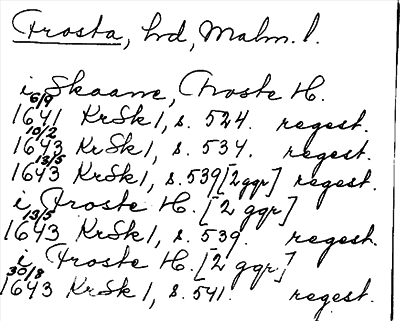 Frosta, hd, Malm. l.
i Skaane, Froste H.
1641 6/9 KrSk 1, s. 524. regest.
1643 10/2 KrSk 1, s. 534. regest.
1643 13/5 KrSk 1, s. 539 [2 ggr] regest.
i Froste H. [2 ggr]
1643 13/5 KrSk 1, s. 539. regest.
i Froste H. [2 ggr]
1643 30/8 KrSk 1, s. 541. regest.